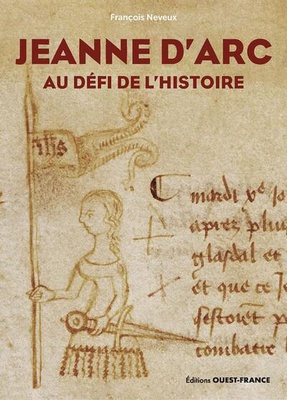 François Neveux
JEANNE D'ARC
AU DÉFI DE L'HISTOIRE
ihs
mardi v
apres plu
glasdal et
et que ce
combatre
Éditions OUEST-FRANCE